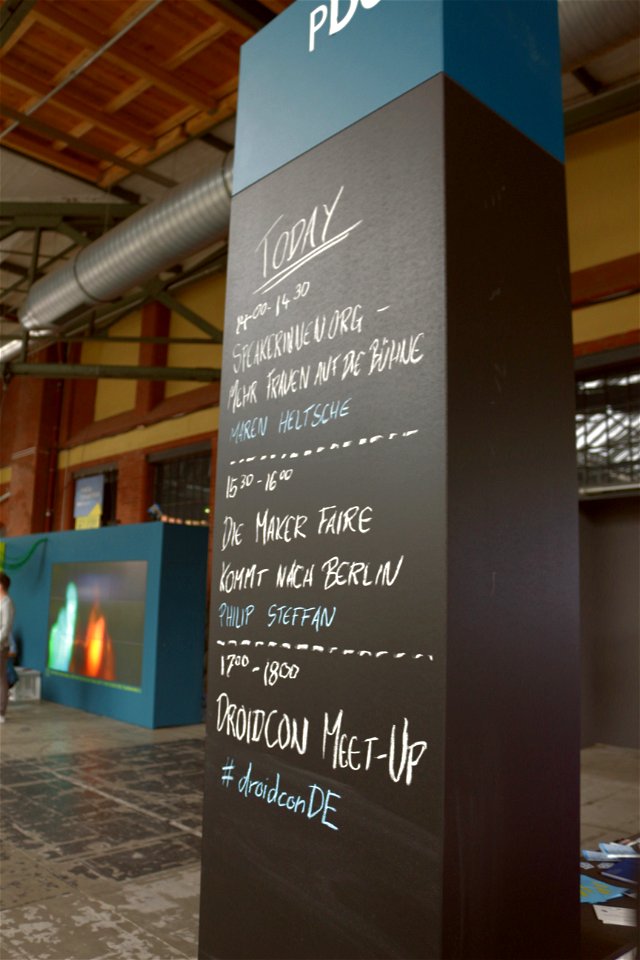 TODAY
14:00-14 30
SPEAKERINNEN ORG -
MEHR FRAUEN AUF DIE BÜHNE
MAREN HELTSCHE
15 30 - 16 00
DIE MAKER FAIRE
KOMMT NACH BERLIN
PHILIP STEFFAN
17 00 - 18 00
DROIDCON MEET-UP
# droidconDE